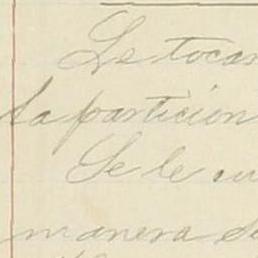 Le tocar
la partición
Se le
manera de